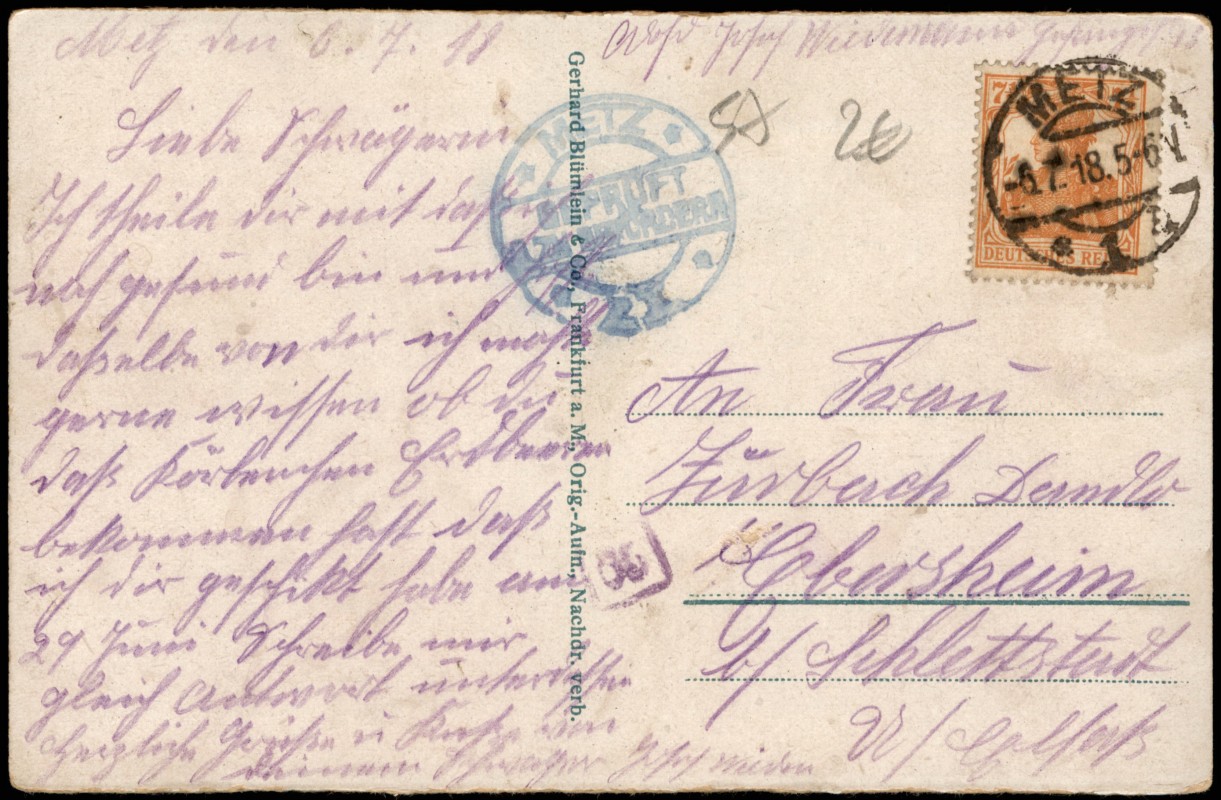 Metz den 6.7.18
Josef Wiedemann
Liebe Schwägerin
Ich theile dir mit daß ich
noch gesund bin und hoffe
dasselbe von dir ich möchte
gerne wissen ob du
daß Körbchen Erdbeeren
bekommen hast daß
ich dir geschikt habe am
29 Juni Schreibe mir
gleich Antwort unterdessen
herzliche Grüße u Küsse von
deinem Schwager Josef
Gerhard Blümlein & Co., Frankfurt a. M., Orig.-Aufn., Nachdr. verb.
METZ
GEPRÜFT
ZU BEFÖRDERN
METZ
-6.7.18.5-6V
1
DEUTSCHES REICH
An Frau
Zürbach
Ebersheim
b/ Schlettstadt
U/ Elsaß